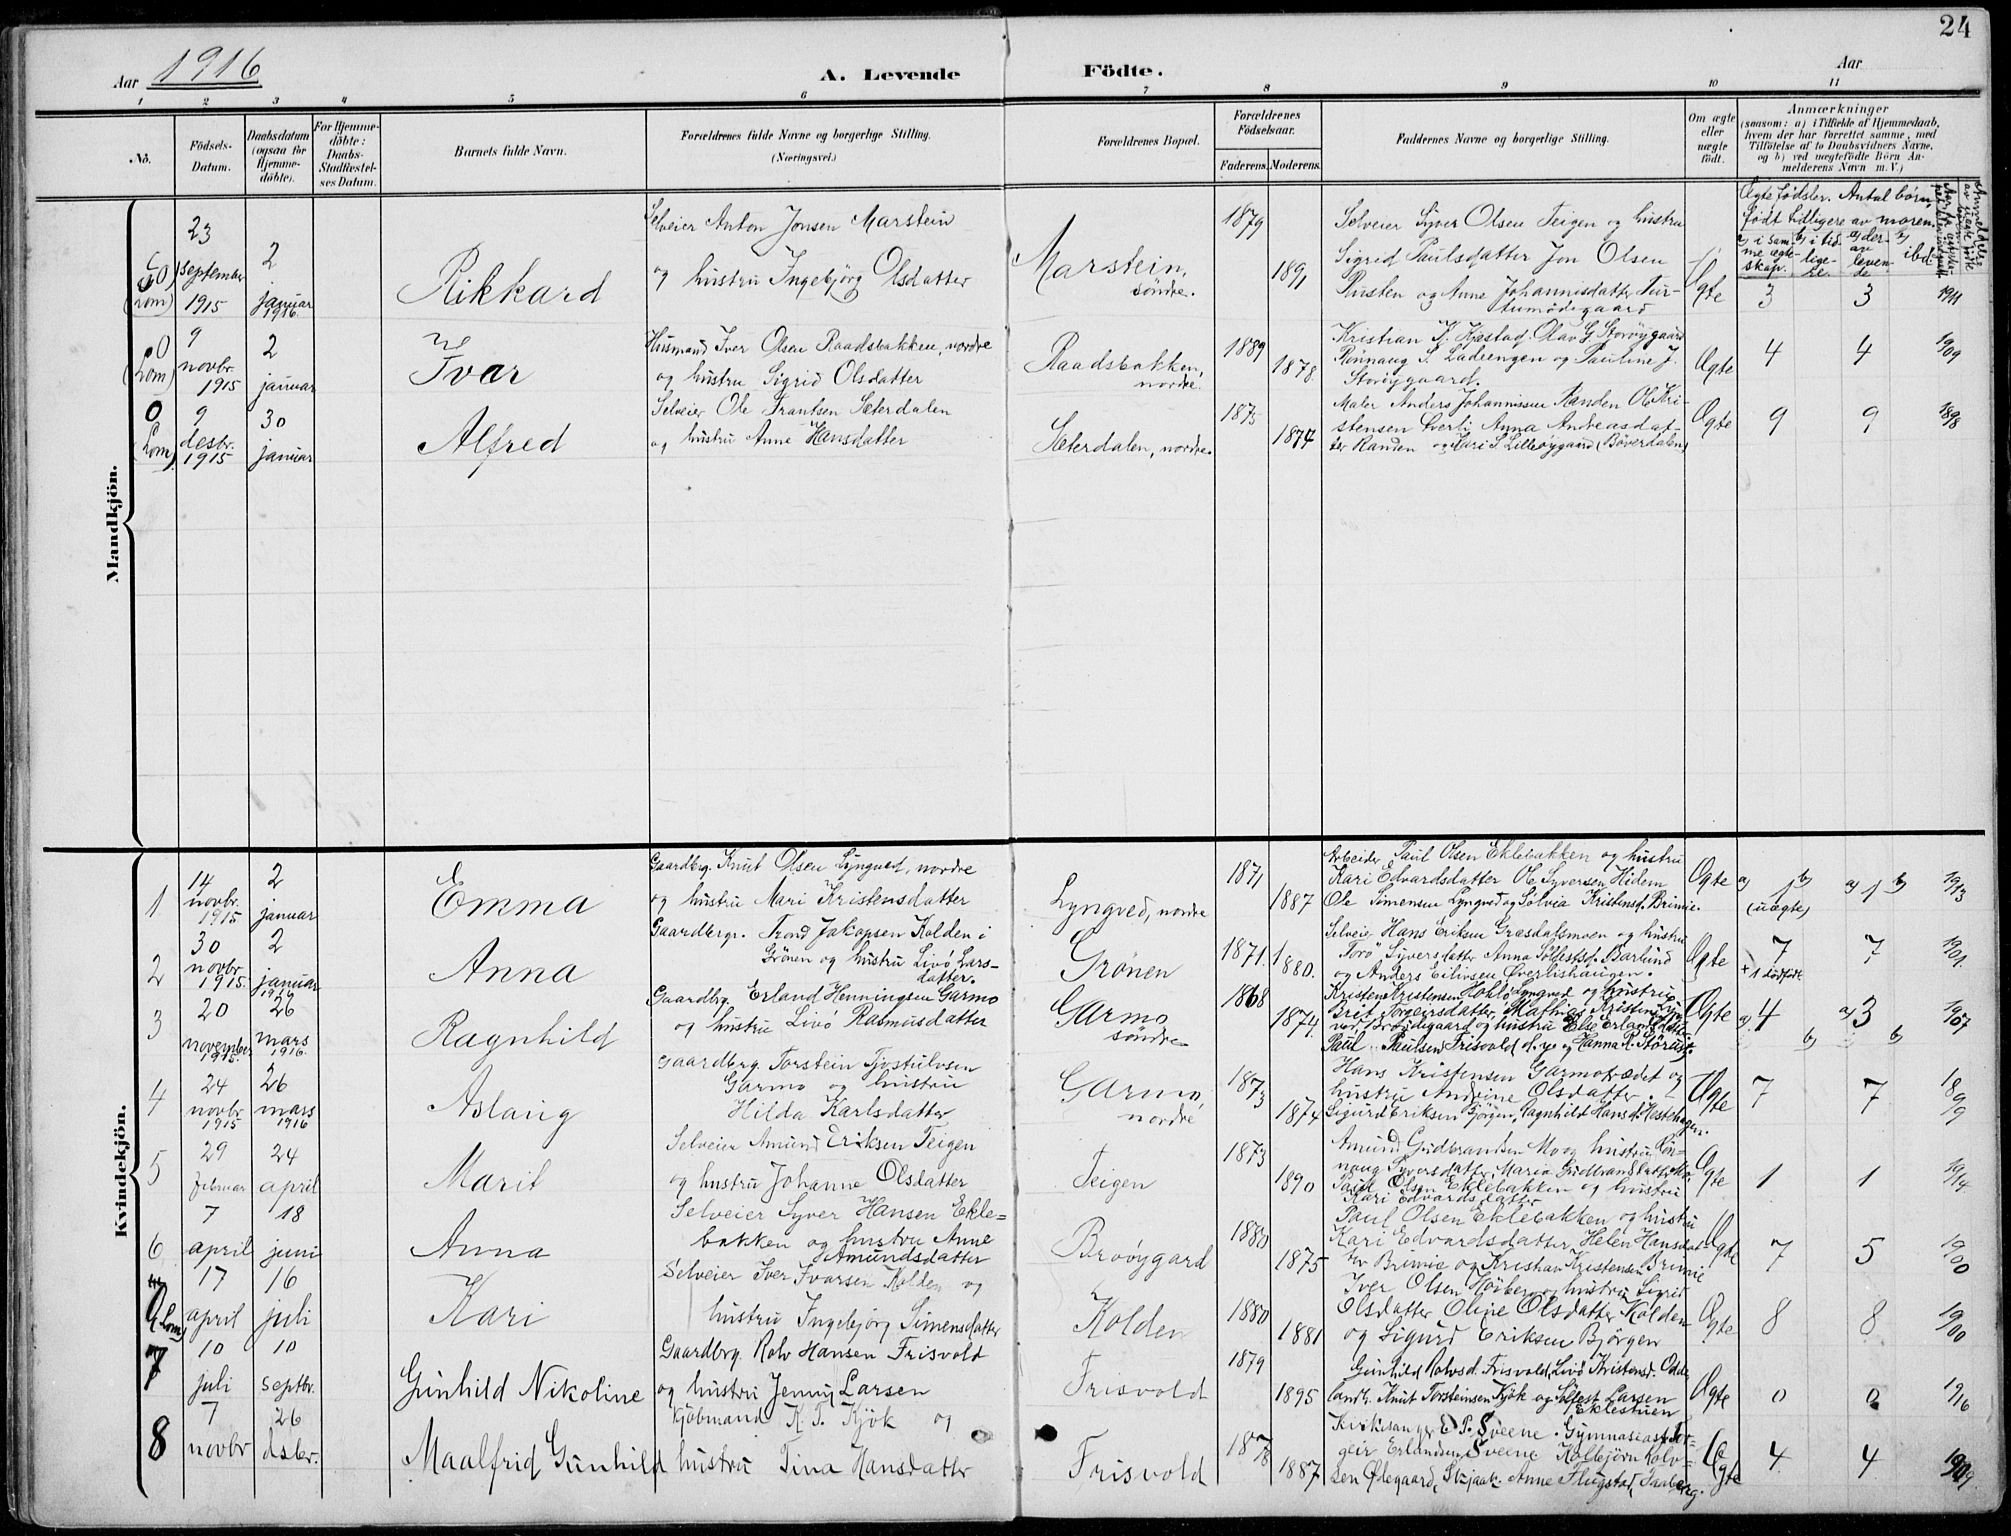 24
Aar 1916
A. Levende Födte.
Aar
1 2 3 4 5 6 7 8 9 10 11
No.
Födsels-
Datum.
Daabsdatum
(ogsaa for
Hjemme-
döbte).
For Hjemme-
döbte:
Daabs-
Stadfæstel-
ses Datum.
Barnets fulde Navn.
Forældrenes fulde Navne og borgerlige Stilling.
(Næringsvei.)
Forældrenes Bopæl.
Forældrenes
Födselsaar.
Faderens. Moderens.
Faddernes Navne og borgerlige Stilling.
Om ægte
eller
uægte
födt.
Anmærkninger
(saasom: a) i Tilfælde af Hjemmedaab,
hvem der har forrettet samme, med
Tilföielse af to Daabsvidners Navne,
og b) ved uægtefödte Börn An-
melderens Navn m. V.)
Ægte fødsler. Antal børn
født tidligere av moren
a) i sam-
me ægte-
skap.
b) i tid-
lige-
re
a) der-
av
leven-
de
b) ibd.
Mandkjön.
0)
(Lom)
23
september
1915
2
januar
1916.
Rikkard
Selveier Anton Jonsen Marstein
og hustru Ingebjörg Olsdatter
Marstein,
söndre.
1879
1891
Selveier Syver Olsen Teigen og hustru
Sigrid Paulsdatter Jon Olsen
Rusten og Anne Johannisdatter
Ægte
3 3 1911
0
(Lom)
9
novbr.
1915
2
januar
Ivar
Husmand Iver Olsen Raadsbakken, nordre
og hustru Sigrid Olsdatter
Raadsbakken,
nordre.
1889
1878.
Kristian K. Kjæstad Olav G. Storöygaard
Rönnaug S. Ladeengen og Pauline J.
Storöygaard.
Ægte
4 4 1909
0
(Lom)
9
desbr.
1915
30
januar
Alfred
Selveier Ole Frantsen Sæterdalen
og hustru Anne Hansdatter
Sæterdalen, nordre.
1875
1874
Maler Anders Johannissen Randen Ole Kri-
stensen Sverli Anna Andreasdat-
ter Randen og Kari S. Lilleöygaard (Böverdalen)
Ægte
9 9 1898
Kvindekjön.
1
14
novbr.
1915
2
januar
Emma
Gaardbrg. Knut Olsen Lyngved, nordre
og hustru Mari Kristensdatter
Lyngved, nordre
1871
1887
Arbeider Paul Olsen Eklebakken og hustru
Kari Edvardsdatter Ole Syversen Hidem
Ole Simensen Lyngved og Solvia Kristensd. Brimie.
Ægte
a) 1 b)
(uægte)
a) 1 b)
1913
2
30
novbr.
1915.
2
januar
1916
Anna
Gaardbrgr. Trond Jakopsen Kolden i
Grönen og hustru Livö Lars-
datter.
Grönen
1871.
1880.
Selveier Hans Eriksen Græsdalsmoen og hustru
Torö Syversdatter Anna Solfestsd. Barlund
og Anders Eilivsen Sverlishaugen.
Ægte
7
+ 1 dödfødt
7
1901.
3
20
november
1915.
26
mars
1916.
Ragnhild
Gaardbrg. Erland Henningsen Garmo
og hustru Livö Rasmusdatter
Garmo
söndre
1868
1874.
Kristen Kristensen Lyngved og hustru
Brit Torgeirsdatter, Mathias Kristens. Lyng-
ved, Brændegaard og hustru Else Erlandsdatter
Paul Paulsen Frisvold d. y. og Hanna R. Störust.
Ægte
a) 4 b)
a) 3 b)
1907
4
24
novbr
1915
26
mars
1916
Aslaug
Gaardbrg. Torstein Tjostulvsen
Garmo og hustru
Hilda Karlsdatter
Garmo,
nordre
1873
1874
Hans Kristensen Garmotrædet og
hustru Andrine Olsdatter.
Sigurd Eriksen Björgen, Ragnhild Hansd. Hestehagen.
Ægte
7 7 1899
5
29
februar
24
april
Marit
Selveier Amund Eriksen Teigen
og hustru Johanne Olsdatter
Teigen
1873
1890
Amund Gudbrandsen Mo og hustru Rön-
naug Syversdatter, Maria Gudbrandsdatter Mo,
Paul Olsen Eklebakken og hustru
Kari Edvardsdatter
Ægte
1 1 1914
6
7
april
18
juni
Anna
Selveier Syver Hansen Ekle=
bakken og hustru Anne
Amundsdatter
Broöygard
1880
1875
Paul Olsen Eklebakken og hustru
Kari Edvardsdatter, Helen Hansdat-
ter Brimie og Kristian Kristensen Brimie
Ægte
7 5 1900
0
(Lom)
17
april
16
juli
Kari
Selveier Iver Ivarsen Kolden og
hustru Ingebjörg Simensdatter
Kolden
1880
1881
Iver Olsen Höiber og hustru Sigrid
Olsdatter Oline Olsdatter Kolden
og Sigurd Eriksen Björgen
Ægte
8 8 1900
7
10
juli
10
septbr.
Gunhild Nikoline
Gaardbrg. Rolv Hansen Frisvold
og hustru Jenny Larsen
Frisvold
1879
1895
Gunhild Rolvsd. Frisvold, Livö Kristensd. Odde,
landh. Knut Torsteinsen Kjök og Solfest Larsen
Eklestuen
Ægte
0 0 1916
8
7
novbr
26
dsbr.
Maalfrid Gunhild
Kjöbmand K. T. Kjök og
hustru Tina Hansdatter
Frisvold
1878
1887
Kirkesanger E. P. Sveene. Gymnasiast Tor-
geir Erlandsen Sveene Kolbjörn Rolv-
sen Ølegaard, Skjaak. Anne Flugstad, Faaberg.
Ægte
4. 4 1909.